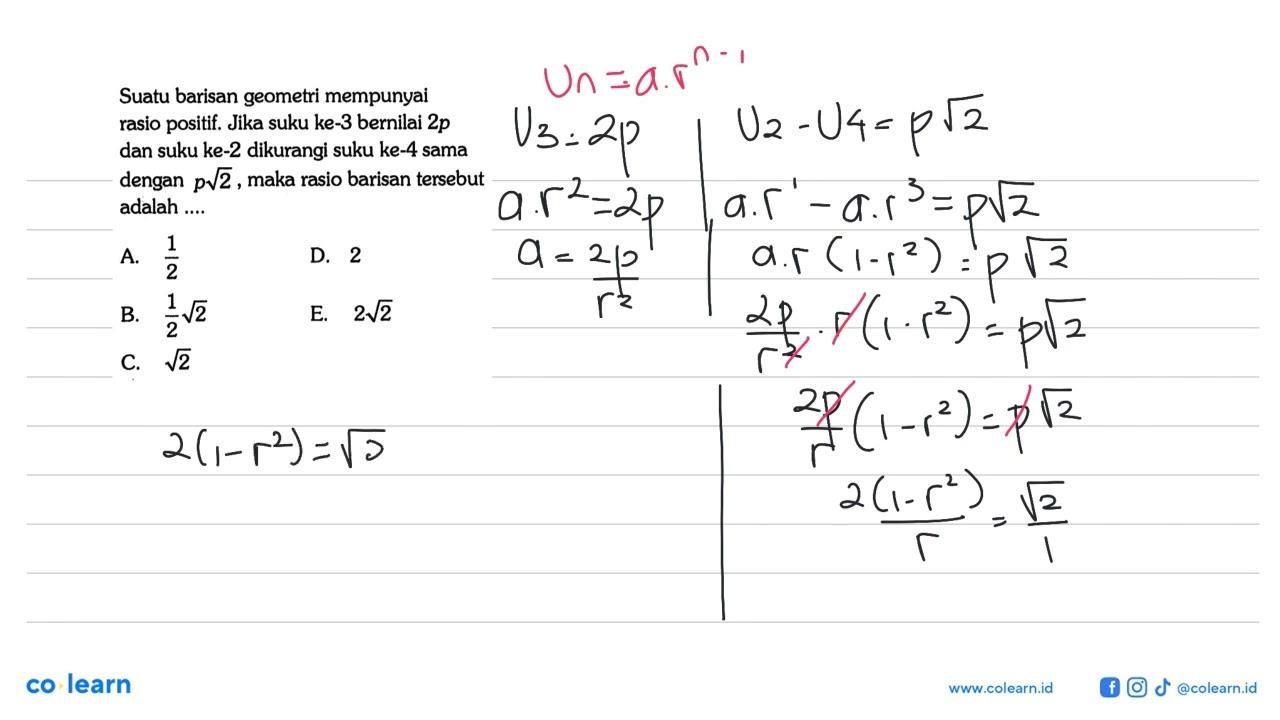 Suatu barisan geometri mempunyai
rasio positif. Jika suku ke-3 bernilai 2p
dan suku ke-2 dikurangi suku ke-4 sama
dengan p√2, maka rasio barisan tersebut
adalah ....
A. 1/2 D. 2
B. 1/2 √2 E. 2√2
C. √2
Un = a.r^(n-1)
U3 = 2p
a.r² = 2p
a = 2p/r²
U2 - U4 = p√2
a.r¹ - a.r³ = p√2
a.r (1-r²) = p√2
2p/r² . r (1-r²) = p√2
2p/r (1-r²) = p√2
2(1-r²)/r = √2/1
2(1-r²) = √
co learn
www.colearn.id
@colearn.id